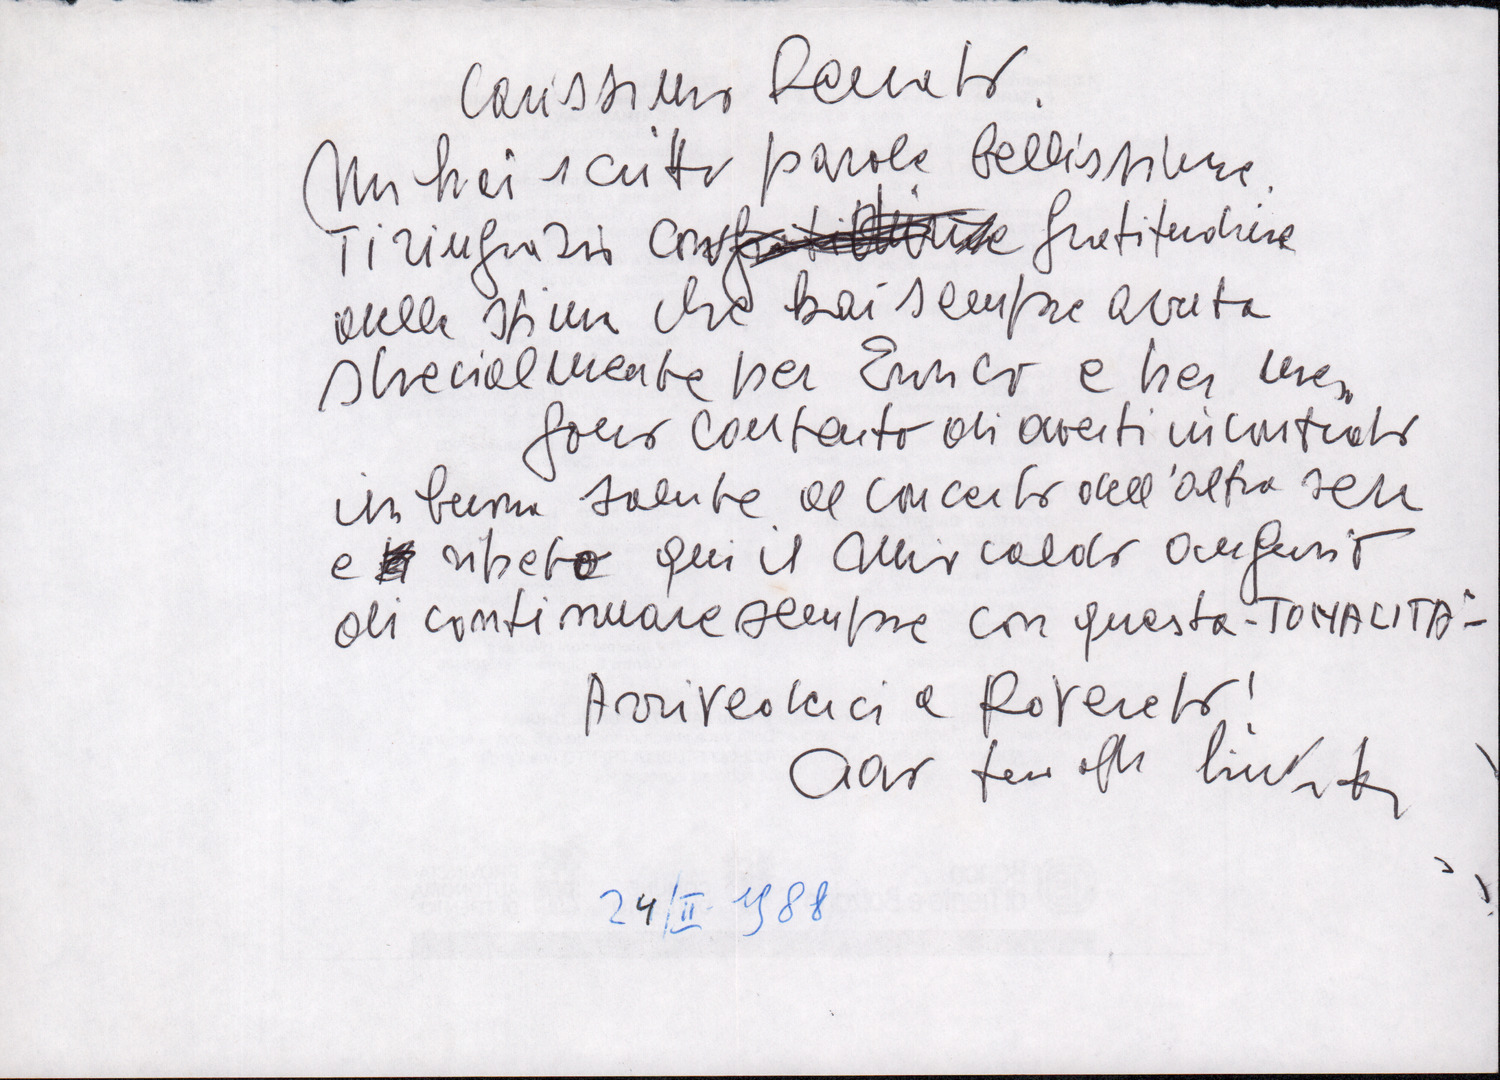 Carissimo Renato.
Mi hai scritto parole bellissime.
Ti ringrazio con gratitudine gratitudine
della stima che hai sempre avuta
specialmente per Enrico e per me.
Sono contento di averti incontrato
in buona salute al concerto dell'altra sera
e ripeto qui il mio caldo augurio
di continuare sempre con questa -TONALITÀ-
Arrivederci a Rovereto!
24/II 1988